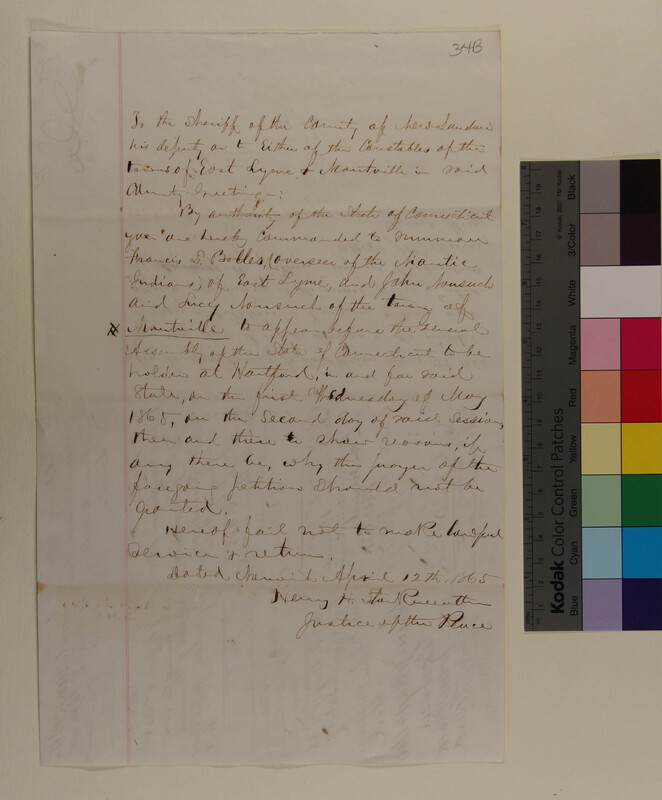 34B
To the Sheriff of the County of New London
his deputy or to Either of the Constables of the
towns of East Lyme & Montville in said
County Greeting:
By authority of the State of Connecticut
you are hereby Commanded to summon
Francis S. Bolles, (overseer of the Niantic
Indians) of East Lyme, and John Nonsuch
and Lucy Nonsuch of the town of
Montville to appear before the General
Assembly of the State of Connecticut to be
holden at Hartford, in and for said
State, on the first Wednesday of May
1865, on the Second day of said Session,
then and there to show reasons, if
any there be, why the prayer of the
foregoing petition should not be
granted.
Hereof fail not to make lawful
service & return.
Dated Norwich April 12th 1865
Henry H.
Justice of the Peace
Kodak Color Control Patches
© Kodak, 2007 TM: Kodak
Blue
Cyan
Green
Yellow
Red
Magenta
White
3/Color
Black